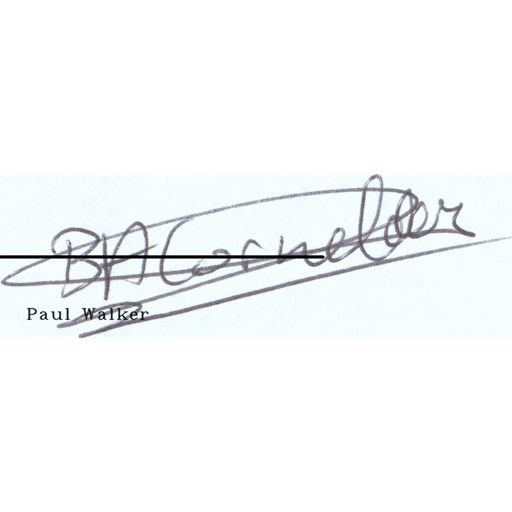 BACornelder
Paul Walker